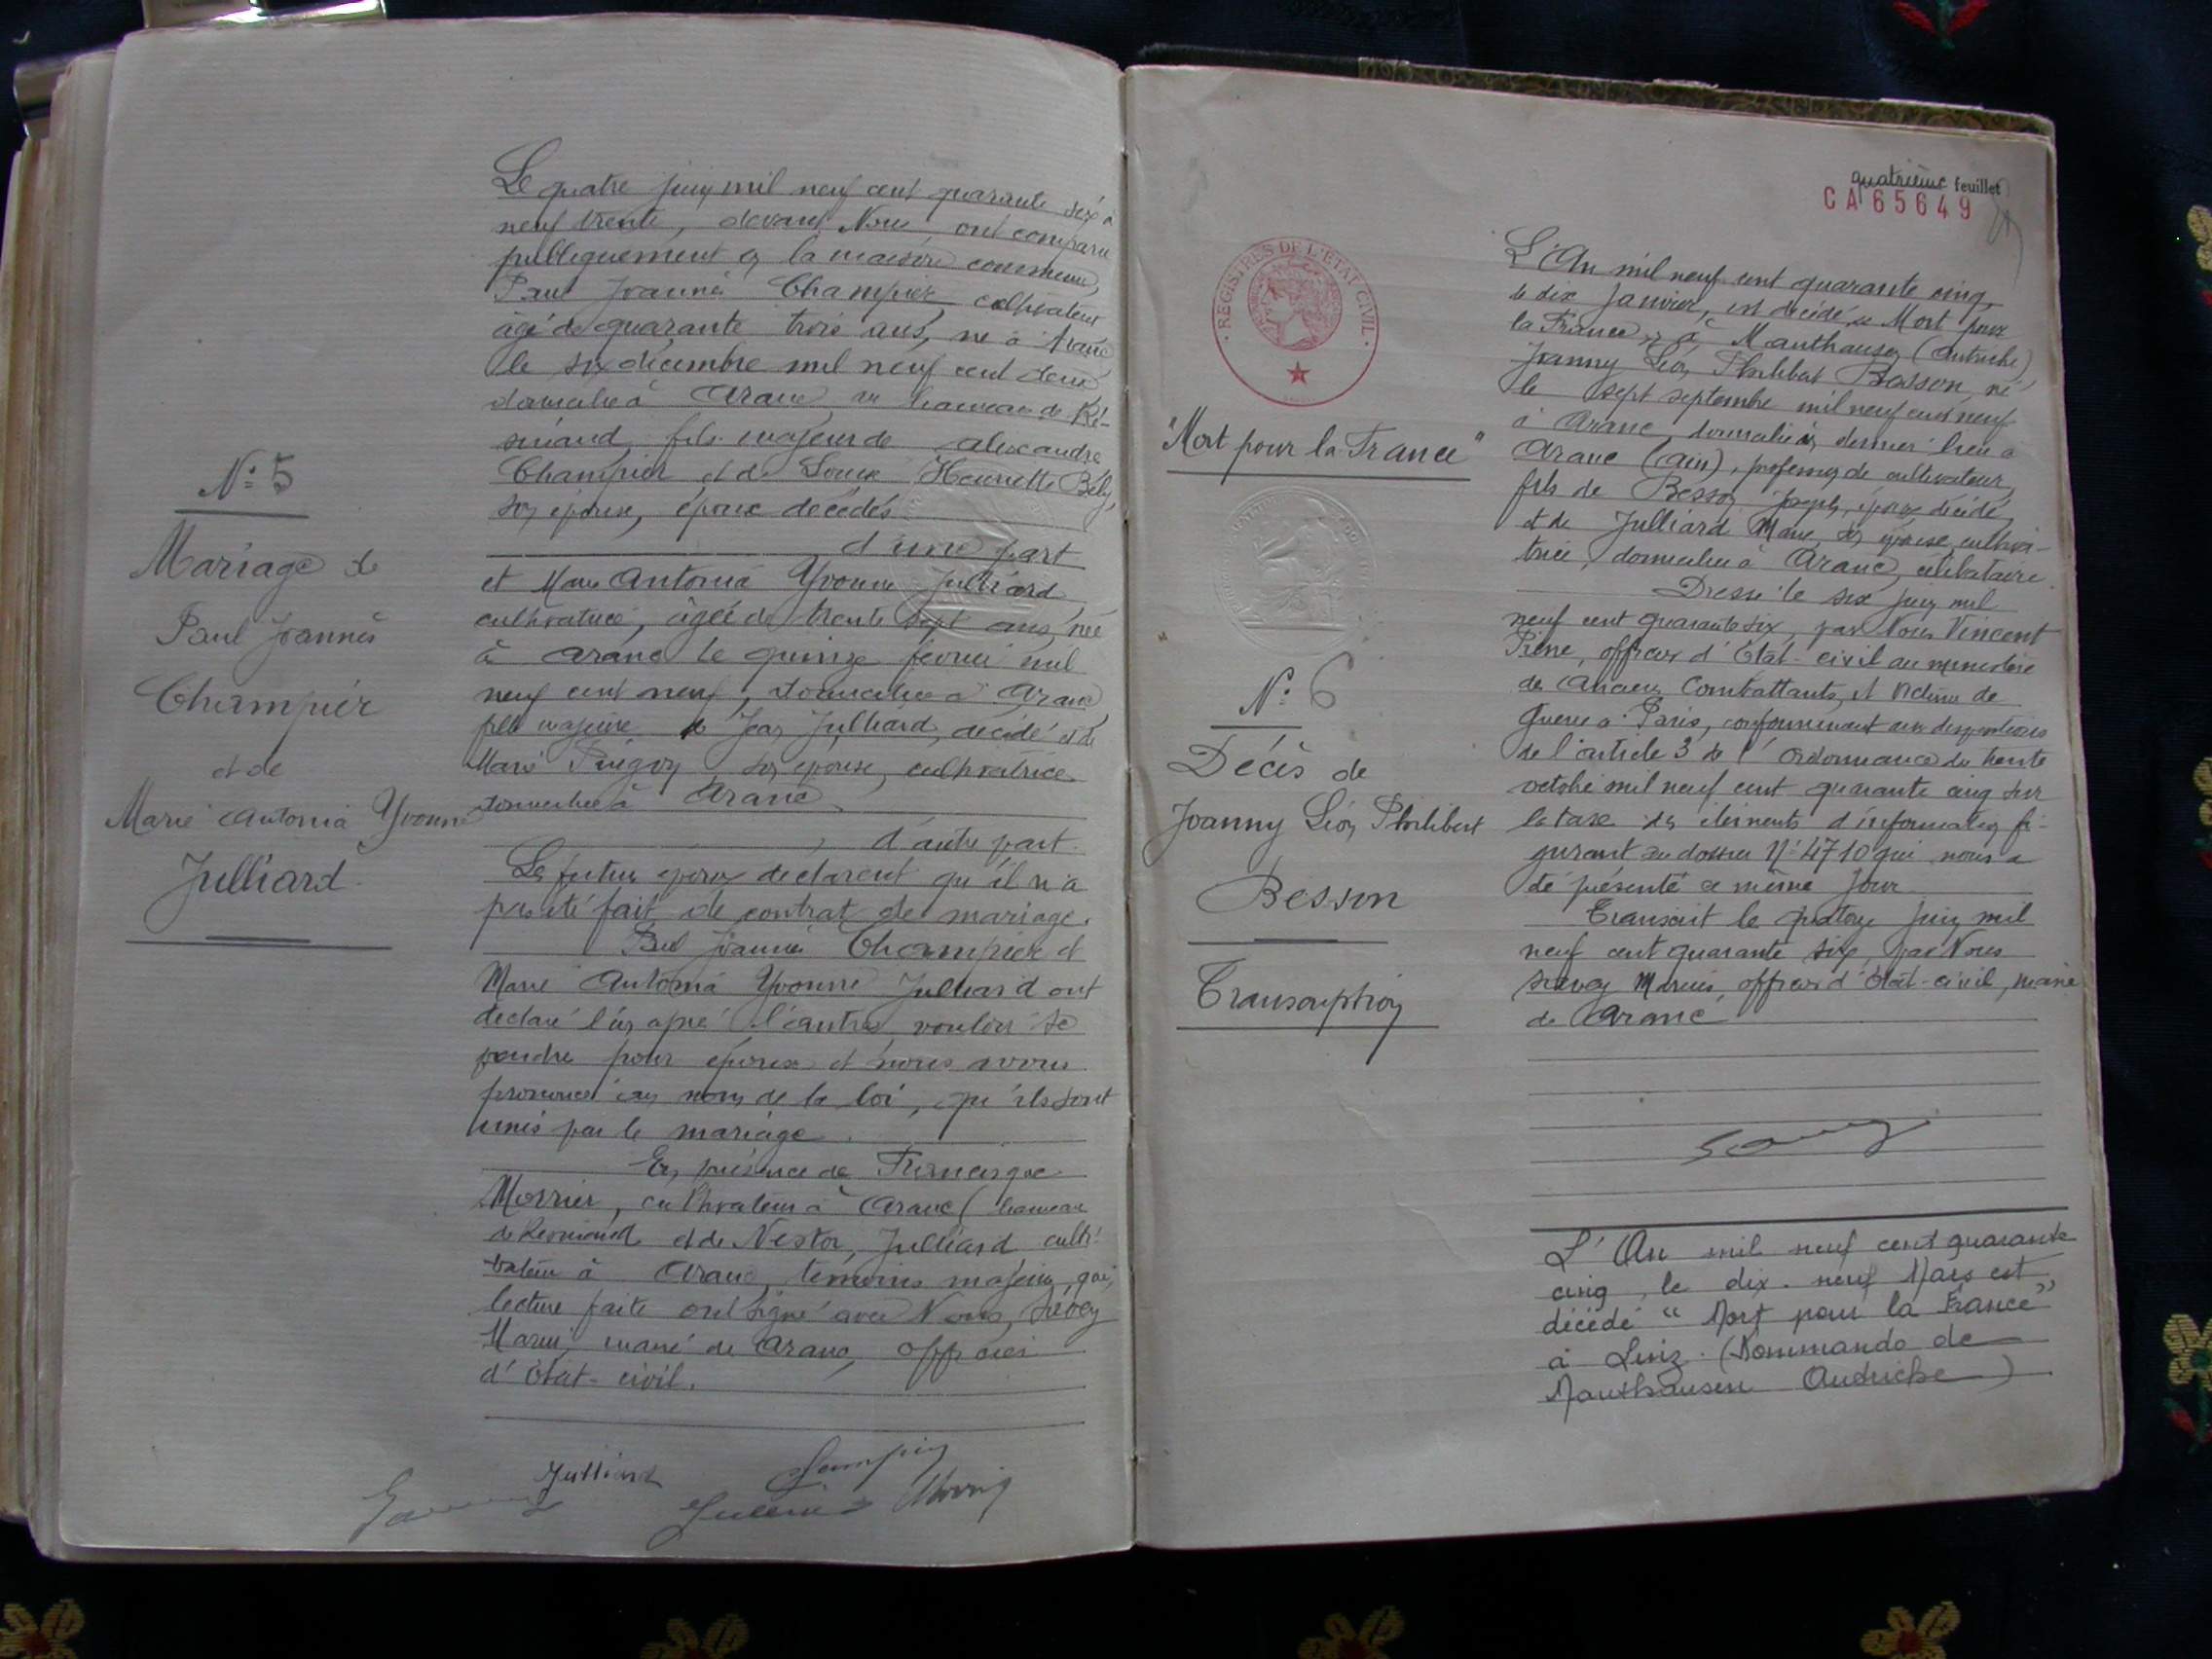 Le quatre juin mil neuf cent quarante six à
neuf trente, devant Nous ont comparu
publiquement en la maison commune,
Paul Joannès Champier, cultivateur
âgé de quarante trois ans, né à Aranc
le six décembre mil neuf cent deux
domicilié à Aranc, au hameau de Ré-
siniand, fils majeur de Alexandre
Champier et de Henriette
son épouse, époux décédés
d'une part
et Marie Antonia Yvonne Julliard
cultivatrice, âgée de trente sept ans, née
à Aranc le quinze février mil
neuf cent neuf, domiciliée à Aranc
fille majeure de Jean Julliard, décédé et de
Marie son épouse, cultivatrice
domiciliée à Aranc
, d'autre part.
Les futurs époux déclarent qu'il n'a
pas été fait de contrat de mariage.
Paul Joannès Champier et
Marie Antonia Yvonne Julliard ont
déclaré l'un après l'autre vouloir se
prendre pour époux et nous avons
prononcé au nom de la loi, qu'ils sont
unis par le mariage.
En présence de Francisque
Morrier, cultivateur à Aranc (hameau
de Résiniand et de Nestor Julliard culti-
vateur à Aranc, témoins majeurs, qui,
lecture faite ont signé avec Nous, Savey
Marius, maire de Aranc, officier
d'état-civil.
Julliard
N° 5
Mariage de
Paul Joannès
Champier
et de
Marie Antonia Yvonne
Julliard
quatrième feuillet
CA 65649
REGISTRES DE L'ETAT CIVIL
"Mort pour la France"
N° 6
Décès de
Joanny Léon Philibert
Besson
Transcription
L'An mil neuf cent quarante cinq,
le dix janvier, est décédé « Mort pour
la France » à Manthausen (Autriche)
Joanny Léon Philibert Besson, né
le sept septembre mil neuf cent neuf
à Aranc, domicilié en dernier lieu à
Aranc (Ain), profession de cultivateur,
fils de Besson Joseph, époux décédé,
et de Julliard Marie, son épouse, cultiva-
trice, domiciliée à Aranc, célibataire.
Dressé le six juin mil
neuf cent quarante six, par Nous Vincent
Pierre, officier d'état-civil au ministère
des Anciens Combattants et Victimes de
Guerre à Paris, conformément aux dispositions
de l'article 3 de l'ordonnance du trente
octobre mil neuf cent quarante cinq sur
la base des éléments d'information fi-
gurant au dossier N° 4710 qui nous a
été présenté ce même jour.
Transcrit le quatorze juin mil
neuf cent quarante six, par Nous
Savey Marius, officier d'état-civil, maire
de Aranc
L'An mil neuf cent quarante
cinq, le dix-neuf Mars est
décédé "Mort pour la France"
à Linz. (Kommando de
Mauthausen Autriche)